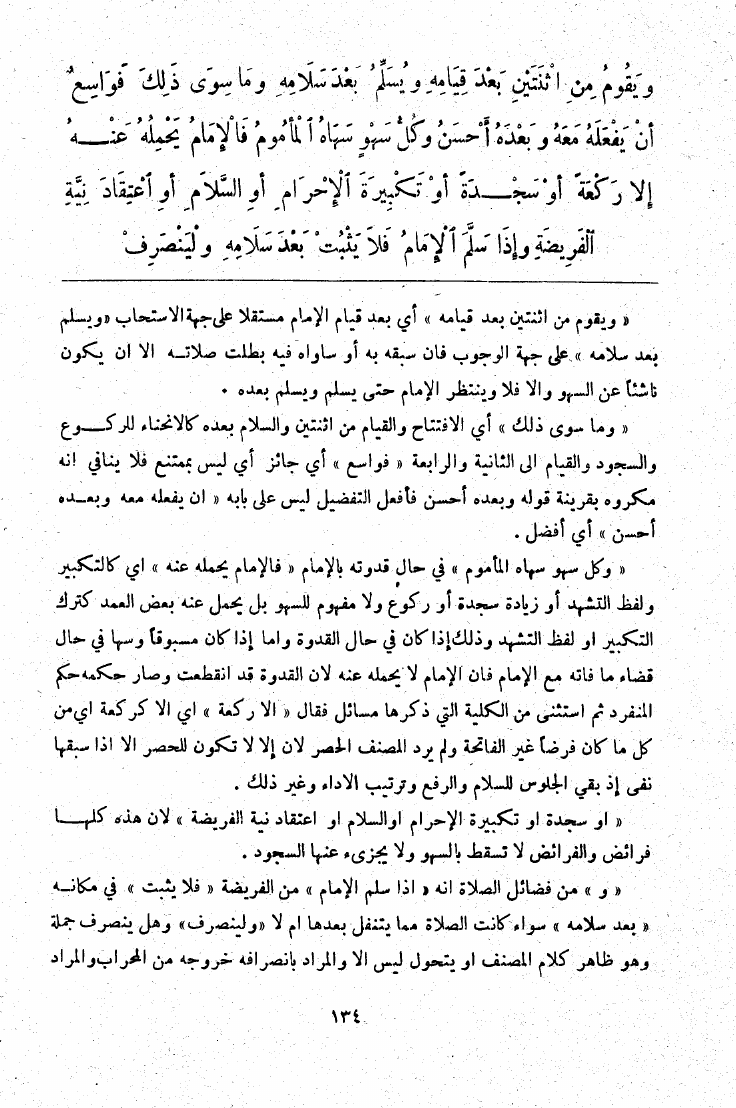 وَيَقُومُ مِنِ اثْنَتَيْنِ بَعْدَ قِيَامِهِ وَيُسَلِّمُ بَعْدَ سَلَامِهِ وَمَا سِوَى ذَلِكَ فَوَاسِعٌ
أَنْ يَفْعَلَهُ مَعَهُ وَبَعْدَهُ أَحْسَنُ وَكُلُّ سَهْوٍ سَهَاهُ الْمَأْمُومُ فَالْإِمَامُ يَحْمِلُهُ عَنْهُ
إِلا رَكْعَةً أَوْ سَجْدَةً أَوْ تَكْبِيرَةَ الْإِحْرَامِ أَوِ السَّلَامِ أَوِ اعْتِقَادَ نِيَّةِ
الْفَرِيضَةِ وَإِذَا سَلَّمَ الْإِمَامُ فَلَا يَثْبُتْ بَعْدَ سَلَامِهِ وَلْيَنْصَرِفْ
« ويقوم من اثنتين بعد قيامه » أي بعد قيام الإمام مستقلا على جهة الاستحاب «ويسلم
بعد سلامه » على جهة الوجوب فان سبقه به أو ساواه فيه بطلت صلاته الا ان يكون
ناشئاً عن السهو والا فلا وينتظر الإمام حتى يسلم ويسلم بعده .
« وما سوى ذلك » أي الافتتاح والقيام من اثنتين والسلام بعده كالانحناء للركوع
والسجود والقيام الى الثانية والرابعة « فواسع » أي جائز أي ليس بممتنع فلا ينافي انه
مكروه بقرينة قوله وبعده أحسن فأفعل التفضيل ليس على بابه « ان يفعله معه وبعده
أحسن » أي أفضل .
« وكل سهو سهاه المأموم » في حال قدوته بالإمام « فالإمام يحمله عنه » اي كالتكبير
ولفظ التشهد أو زيادة سجدة أو ركوع ولا مفهوم للسهو بل يحمل عنه بعض العمد كترك
التكبير او لفظ التشهد وذلك إذا كان في حال القدوة واما إذا كان مسبوقاً وسها في حال
قضاء ما فاته مع الإمام فان الإمام لا يحمله عنه لان القدوة قد انقطعت وصار حكمه حكم
المنفرد ثم استثنى من الكلية التي ذكرها مسائل فقال « الا ركعة » اي الا كركعة اي من
كل ما كان فرضاً غير الفاتحة ولم يرد المصنف الحصر لان إلا لا تكون للحصر الا اذا سبقها
نفى إذ بقي الجلوس للسلام والرفع وترتيب الاداء وغير ذلك .
« او سجدة او تكبيرة الإحرام اوالسلام او اعتقاد نية الفريضة » لان هذه كلها
فرائض والفرائض لا تسقط بالسهو ولا يجزىء عنها السجود .
« و » من فضائل الصلاة انه « اذا سلم الإمام » من الفريضة « فلا يثبت » في مكانه
« بعد سلامه » سواء كانت الصلاة مما يتنفل بعدها ام لا «ولينصرف» وهل ينصرف جملة
وهو ظاهر كلام المصنف او يتحول ليس الا والمراد بانصرافه خروجه من المحراب والمراد
١٣٤